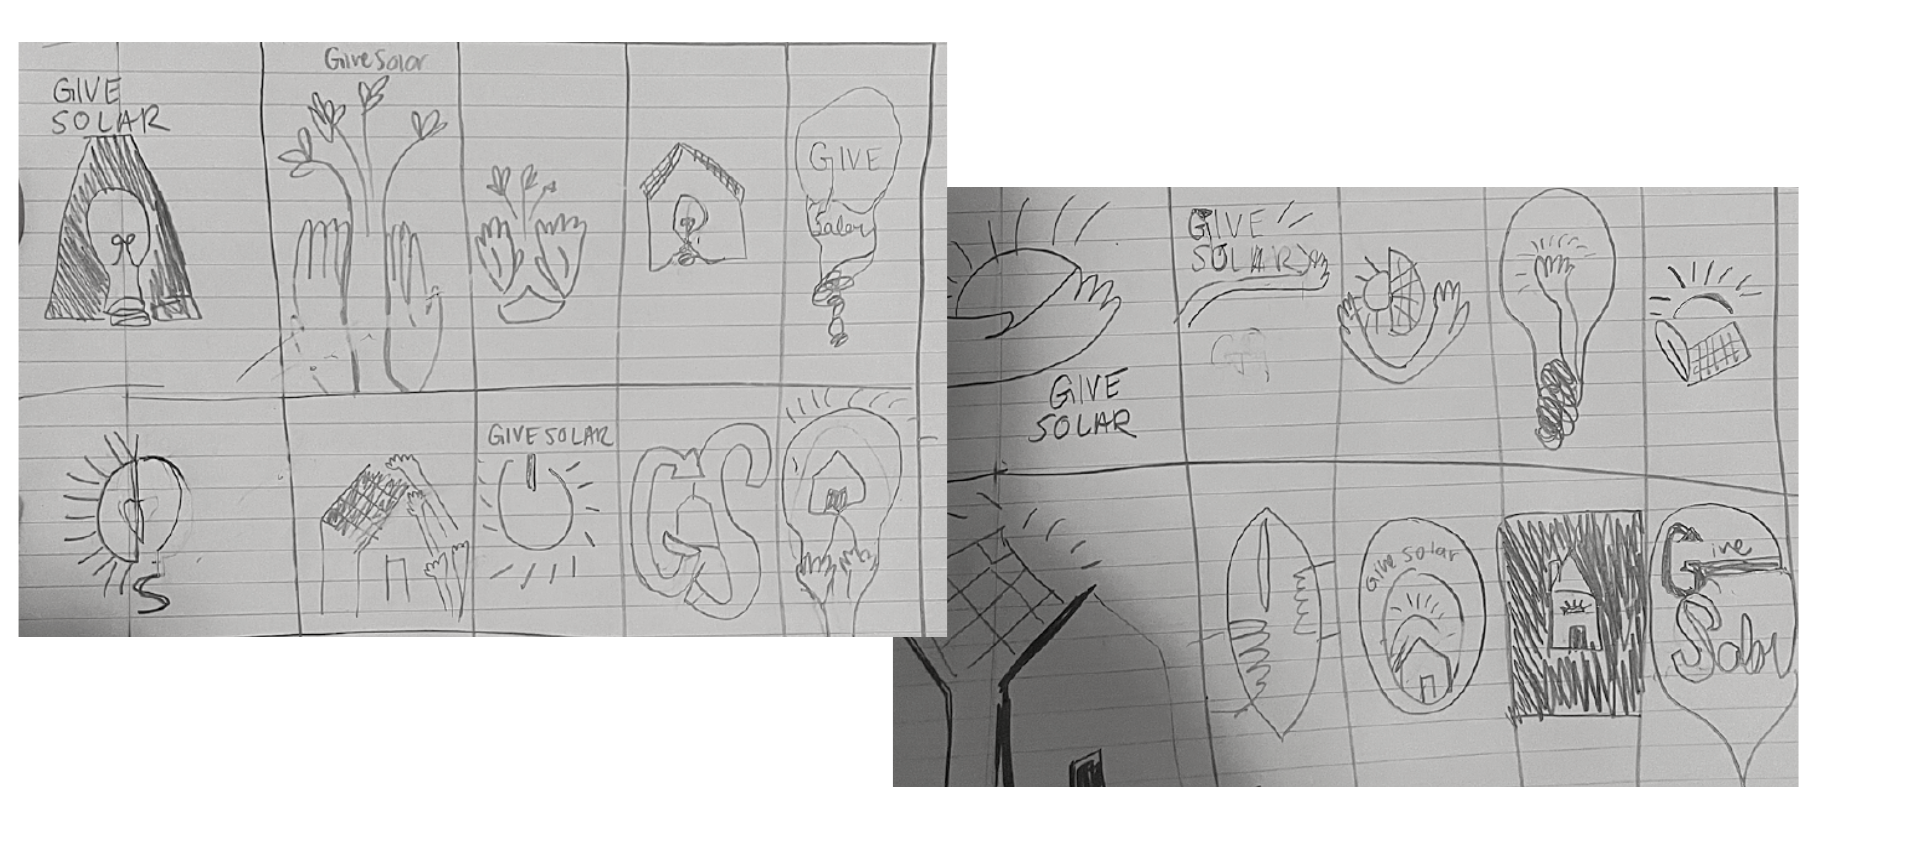 GIVE
SOLAR
Give Solar
GIVE
Solar
S
GIVE SOLAR
GS
GIVE
SOLAR
GIVE
SOLAR
Give Solar
Give